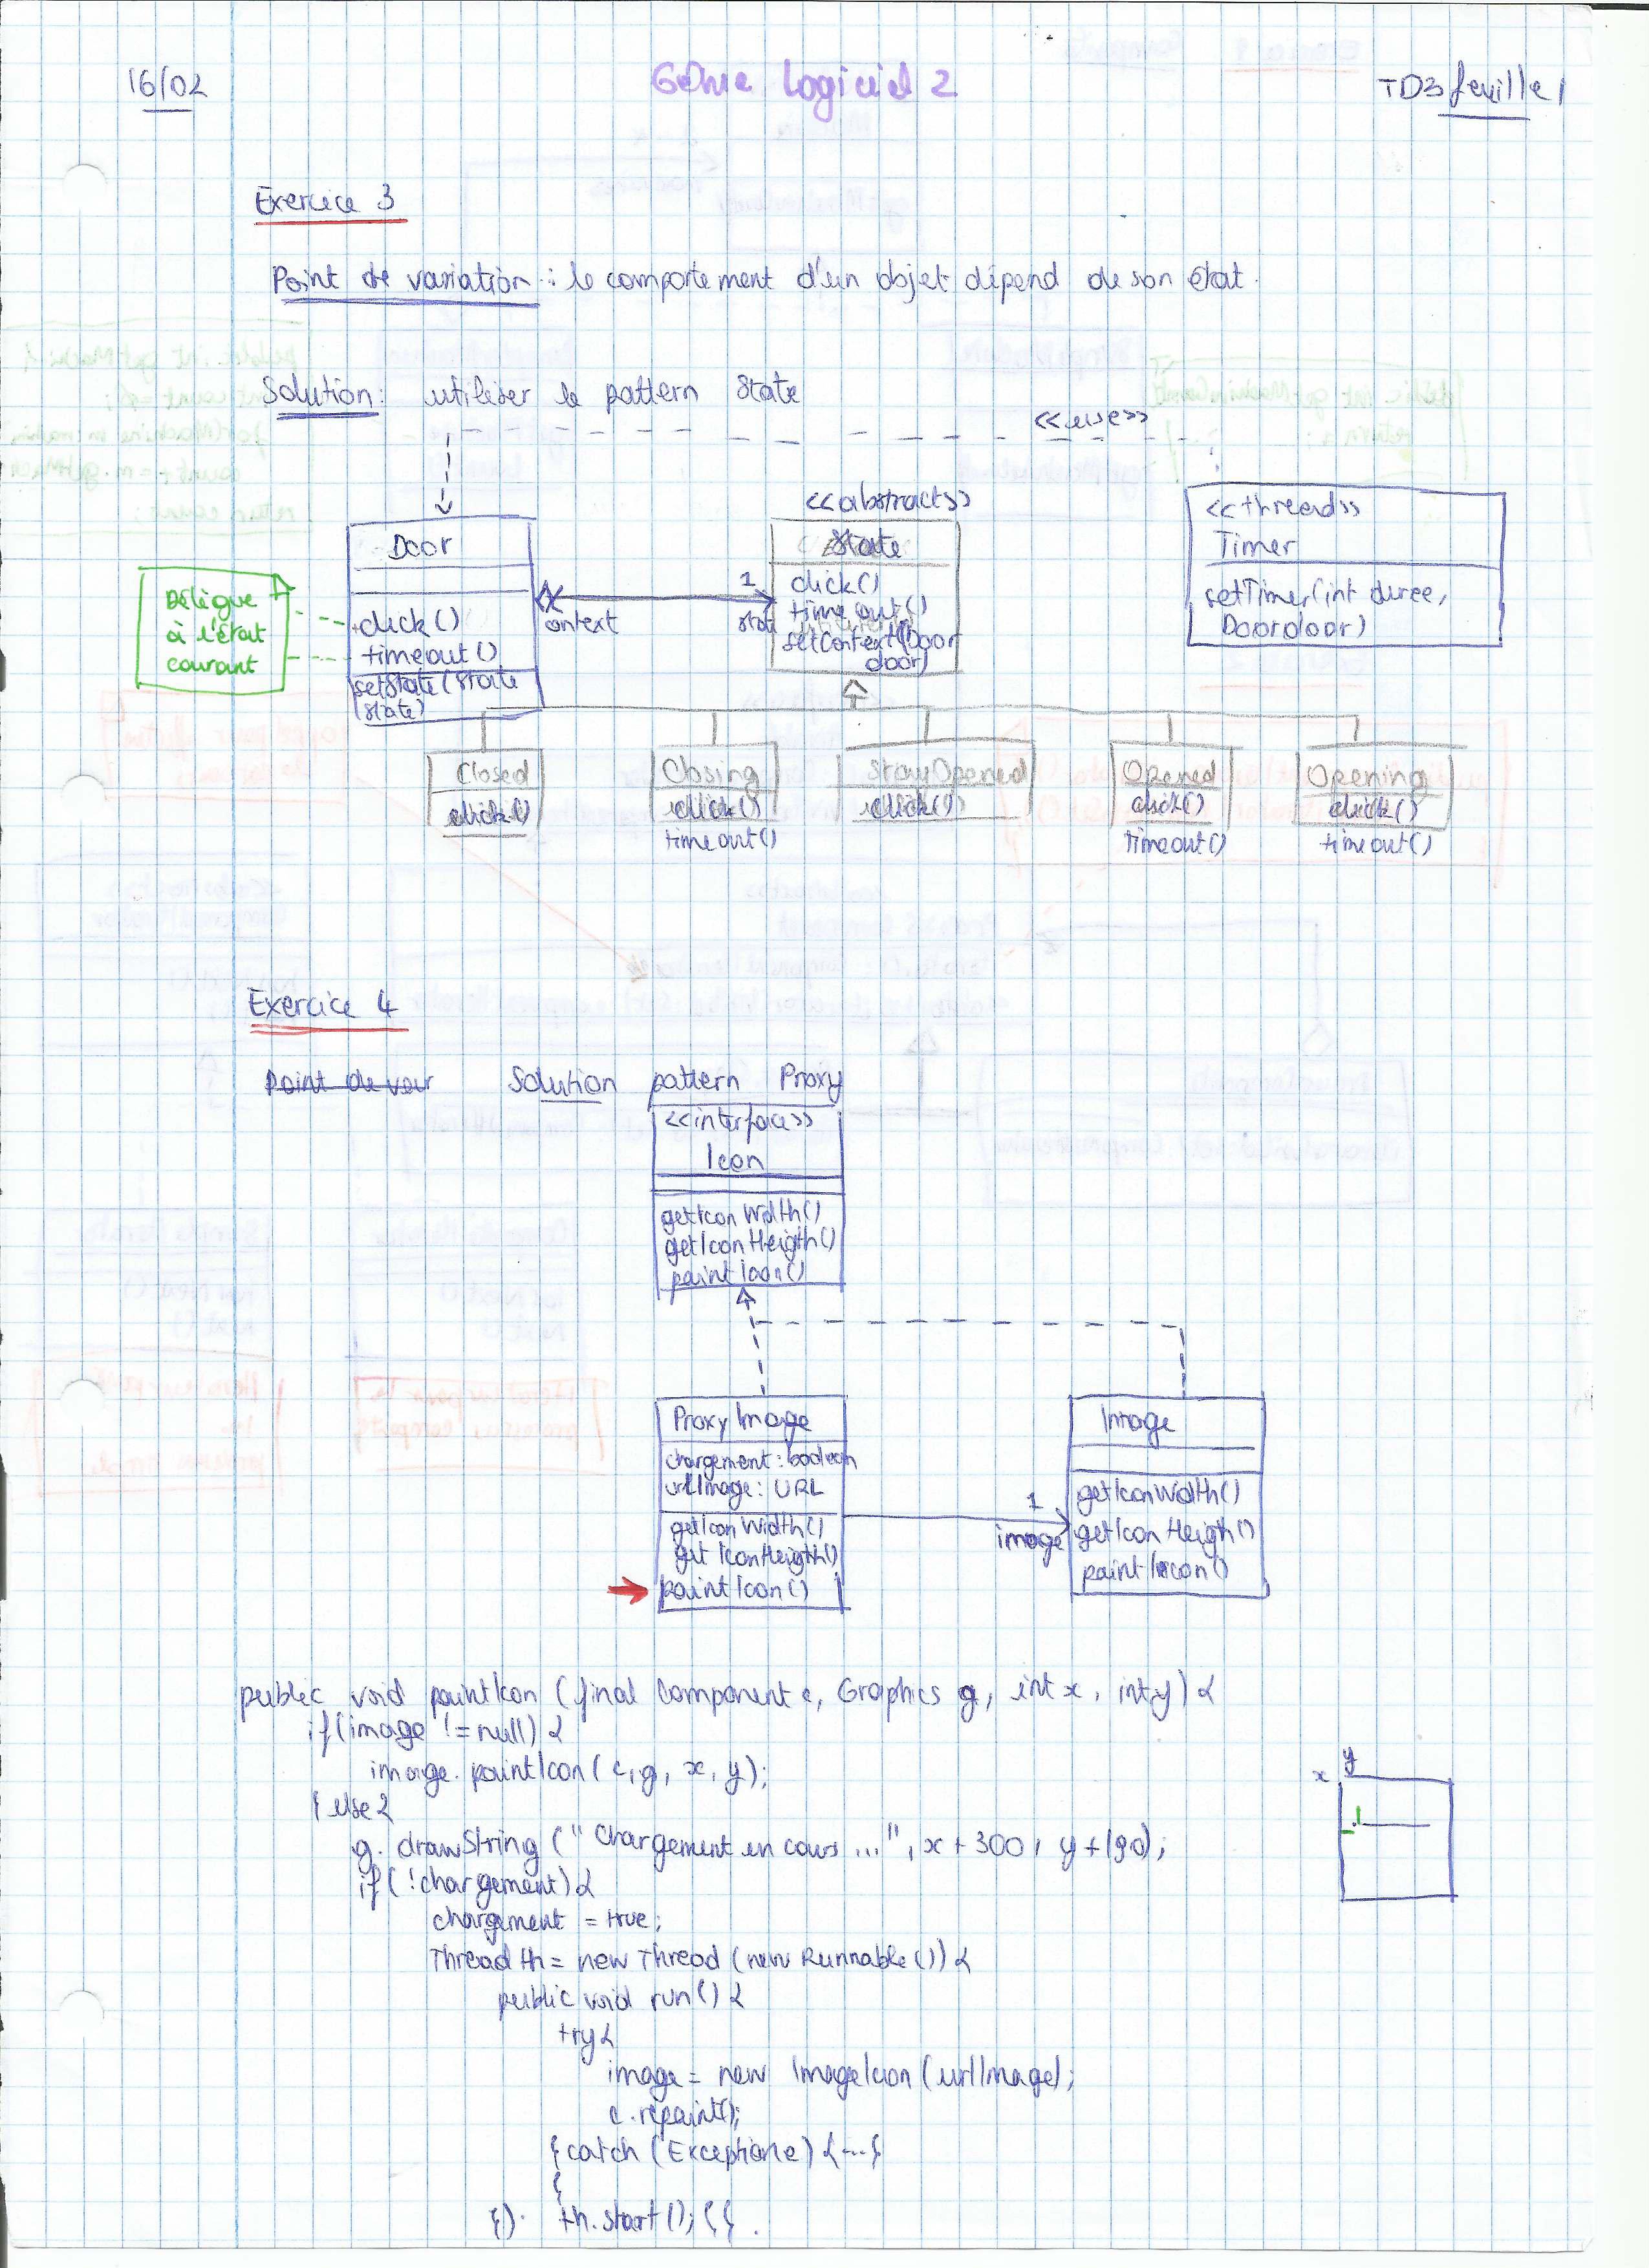 16/02
Génie Logiciel 2
TD3 feuille 1
Exercice 3
Point de variation : le comportement d'un objet dépend de son état.
Solution : utiliser le pattern State
<<use>>
Door
click()
timeout()
setState(State
state)
Délègue
à l'état
courant
context
1
state
<<abstract>>
State
click()
timeout()
setContext(Door
door)
<<thread>>
Timer
setTimer(int duree,
Door door)
Closed
click()
Closing
click()
timeout()
StayOpened
click()
Opened
click()
timeout()
Opening
click()
timeout()
Exercice 4
Point de var
Solution pattern Proxy
<<interface>>
Icon
getIconWidth()
getIconHeigth()
paintIcon()
ProxyImage
chargement : boolean
urlImage : URL
getIconWidth()
getIconHeigth()
paintIcon()
1
image
Image
getIconWidth()
getIconHeigh()
paintIcon()
public void paintIcon (final Component c, Graphics g, int x, int y) {
if (image != null) {
image.paintIcon(c, g, x, y);
} else {
g.drawString("Chargement en cours ...", x+300, y+190);
if (!chargement) {
chargement = true;
Thread th = new Thread (new Runnable()) {
public void run() {
try {
image = new ImageIcon (urlImage);
c.repaint();
} catch (Exception e) {...}
}
}). th.start(); } } .
y
x